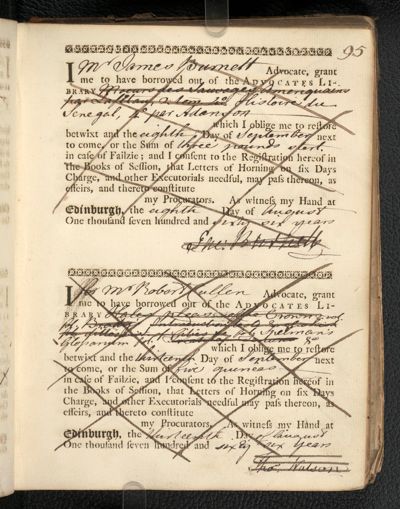 95
I Mr James Burnett Advocate, grant
me to have borrowed out of the ADVOCATES LI-
BRARY Moeurs des Sauvages Ameriquains
par Lafitau, 2 tom 4to Histoire du
Senegal, 4to par Adanson
which I oblige me to restore
betwixt and the eighth Day of September next
to come, or the Sum of three pounds ster:
in case of Failzie; and I consent to the Registration hereof in
the Books of Session, that Letters of Horning on six Days
Charge, and other Executorials needful, may pass thereon, as
effeirs, and thereto constitute
my Procurators. As witness my Hand at
Edinburgh, the eighth Day of August
One thousand seven hundred and sixty six years
I Mr Robert Cullen Advocate, grant
me to have borrowed out of the ADVOCATES LI-
BRARY Hales pleas of the Crown
by Introduction
Spelman's
Glossarium fol.
which I oblige me to restore
betwixt and the thirteenth Day of September next
to come, or the Sum of five guineas
in case of Failzie, and I consent to the Registration hereof in
the Books of Session, that Letters of Horning on six Days
Charge, and other Executorials needful may pass thereon, as
effeirs, and thereto constitute
my Procurators. As witness my Hand at
Edinburgh, the thirteenth Day of August
One thousand seven hundred and sixty six years